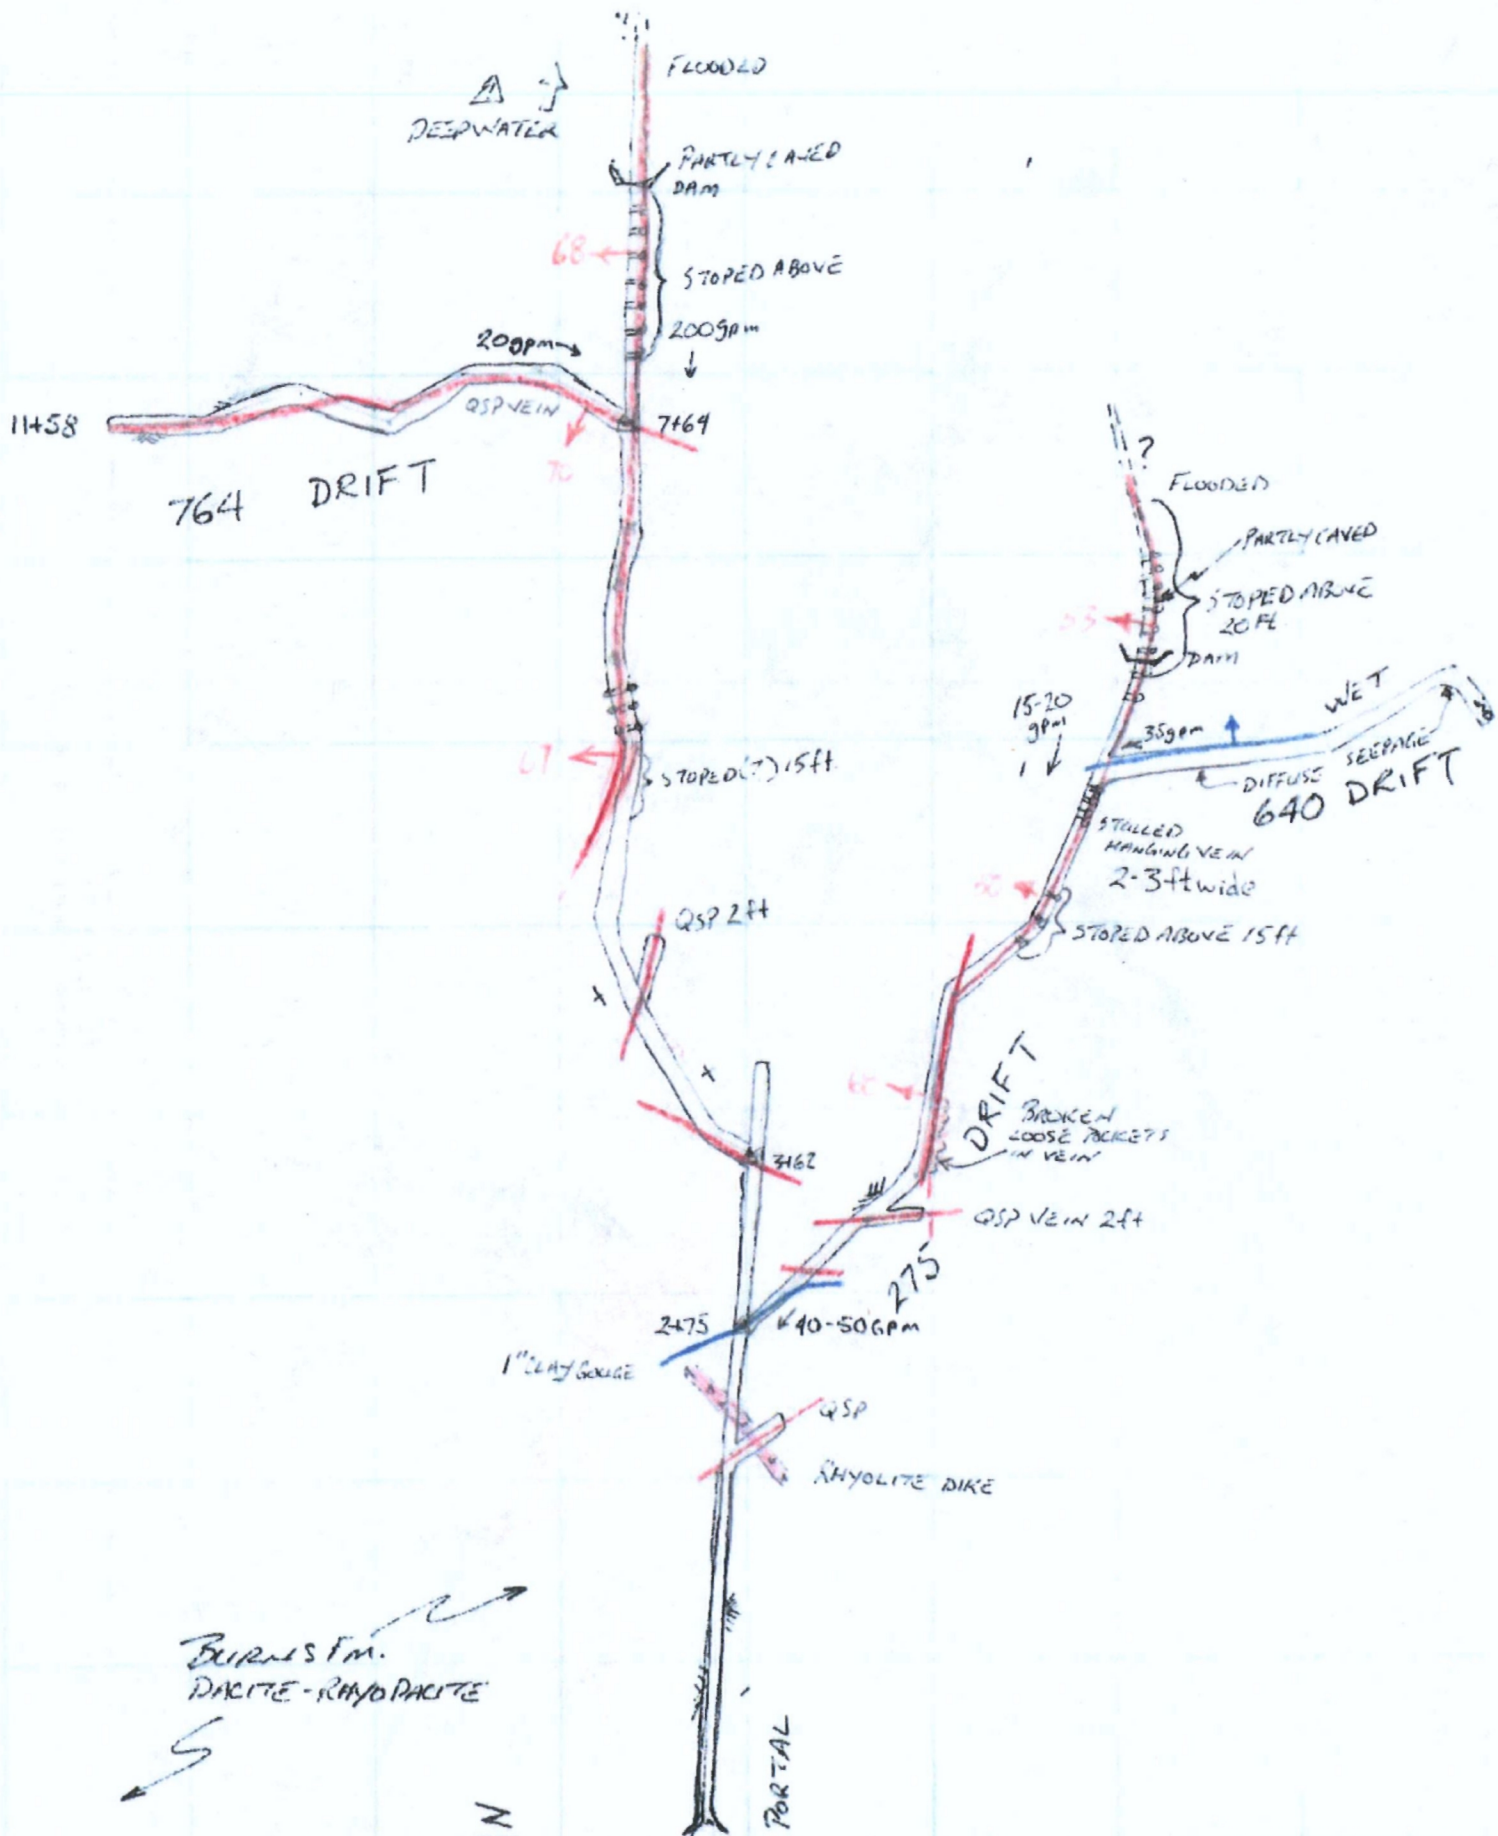 FLOODED
DEEPWATER
PARTLY CAVED
DAM
68
STOPED ABOVE
200gpm
20gpm
QSP VEIN
11+58
7+64
70
764 DRIFT
?
FLOODED
PARTLY CAVED
STOPED ABOVE
20 Ft
DAM
15-20
gpm
35gpm
WET
DIFFUSE SEEPAGE
640 DRIFT
STOPED(?) 15ft
HANGING VEIN
2-3ft wide
STOPED ABOVE 15ft
QSP 2ft
3+62
275 DRIFT
BROKEN
LOOSE POCKETS
IN VEIN
QSP VEIN 2ft
2+75
40-50 GPM
1" CLAY GOUGE
QSP
RHYOLITE DIKE
BURNS FM.
DACITE-RHYODACITE
PORTAL
N